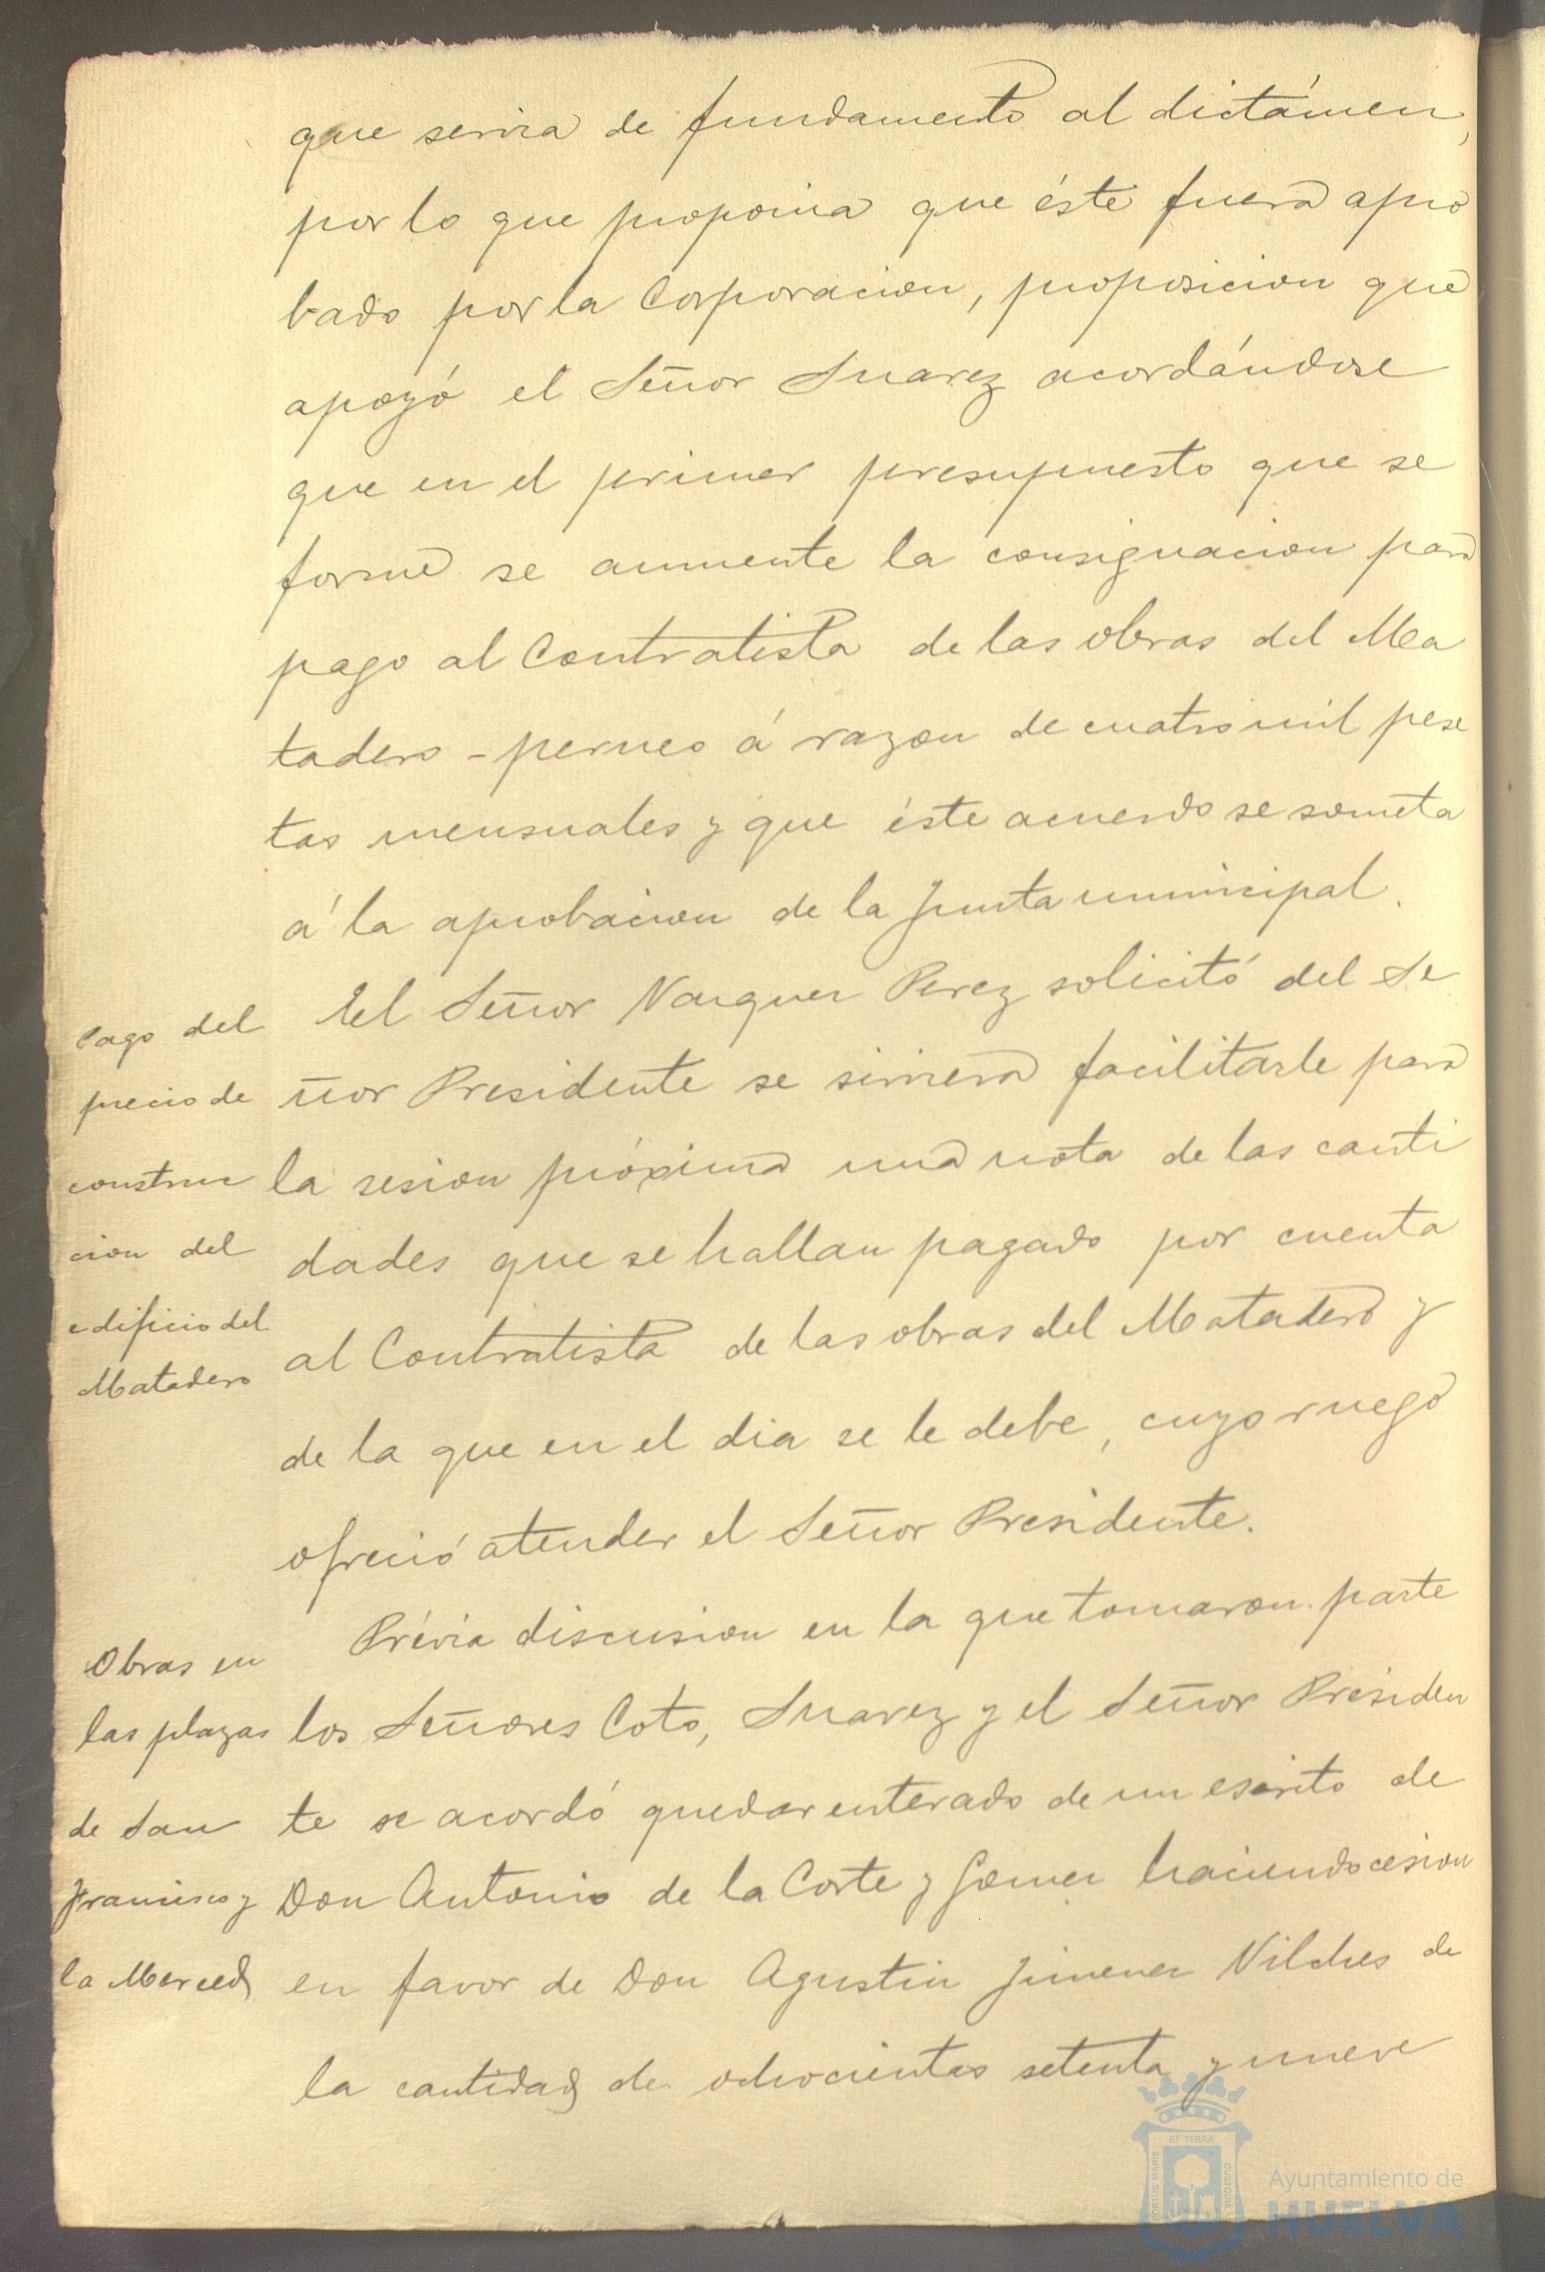 que servia de fundamento al dictámen,
por lo que proponia que éste fuera apro
bado por la Corporacion, proposicion que
apoyó el Señor Suarez acordándose
que en el primer presupuesto que se
forme se aumente la consignacion para
pago al Contratista de las obras del Ma
tadero - perneo á razon de cuatro mil pese
tas mensuales y que éste acuerdo se someta
á la aprobacion de la Junta municipal.
Pago del
precio de
construc
cion del
edificio del
Matadero
El Señor Vazquez Perez solicitó del Se
ñor Presidente se sirviera facilitarle para
la sesion próxima una nota de las canti
dades que se hallan pagado por cuenta
al Contratista de las obras del Matadero y
de la que en el dia se le debe, cuyo ruego
ofreció atender el Señor Presidente.
Obras en
las plazas
de San
Francisco y
la Merced
Prévia discusion en la que tomaron parte
los Señores Coto, Suarez y el Señor Presiden
te se acordó quedar enterado de un escrito de
Don Antonio de la Corte y Gomez haciendo cesion
en favor de Don Agustin Jimenez Vilches de
la cantidad de ochocientas setenta y nueve
ET TERRA
PORTUS MARIS
CUSTODIA
Ayuntamiento de
HUELVA